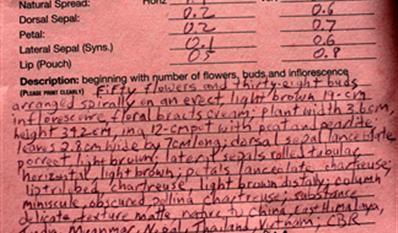 Natural Spread: Horiz
Dorsal Sepal: 0.2 0.6
Petal: 0.2 0.7
Lateral Sepal (Syns.) 0.1 0.6
Lip (Pouch) 05 0.8
Description: beginning with number of flowers, buds and inflorescence
(PLEASE PRINT CLEARLY) Fifty flowers and thirty-eight buds
arranged spirally on an erect, light brown 19-cm
inflorescence, floral bracts cream; plant width 36cm,
height 39.2-cm, in a 12-cm pot with peat and perlite;
leaves 2.8cm wide by 7cm long; dorsal sepal lanceolate
porrect, light brown; lateral sepals rolled tubular
horizontal, light brown; petals lanceolate chartreuse;
lip trilobed, chartreuse, light brown distally; column
miniscule, obscured, pollina chartreuse; substance
delicate, texture matte, native to China, East Himalaya,
India, Myanmar, Nepal, Thailand, Vietnam; CBR